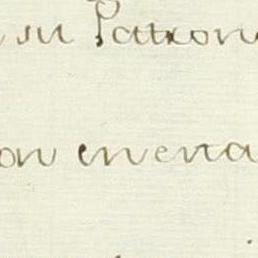 su Patron
on en era